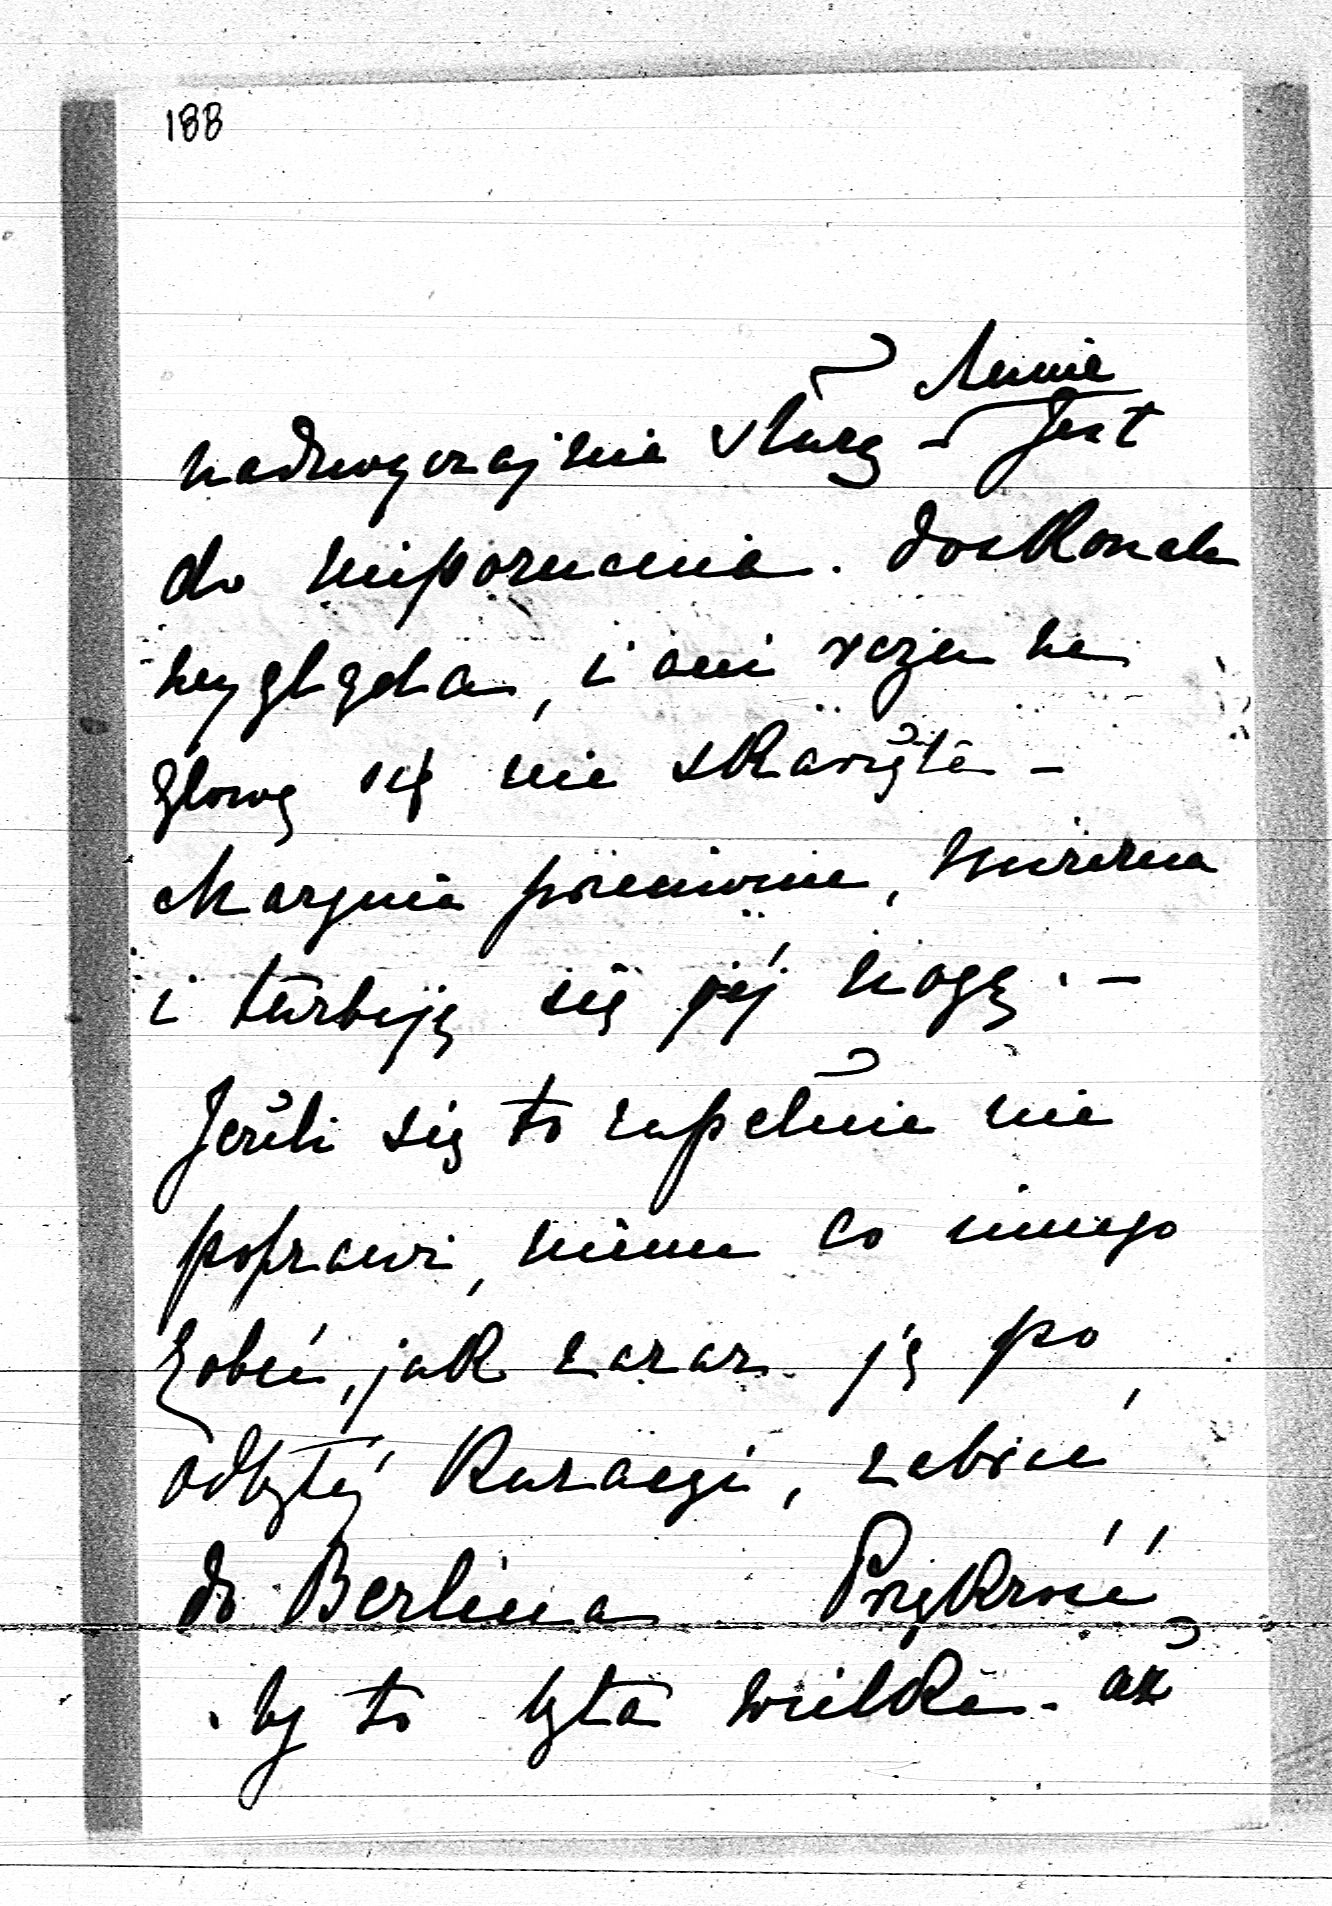 188
Annie
nadzwyczajnie służy – Jest
do niepoznania. doskonale
wygląda, i ani razu na
głowę się nie skarżyła –
Marynia przeciwnie, mizerna
i turbuję się jéj nogą. –
Jeżeli się to zupełnie nie
poprawi, niema co innego
robić, jak zaraz ją po
odbytéj Kuracyi, zabrać
do Berlina Przykrość
by to była wielka – aż